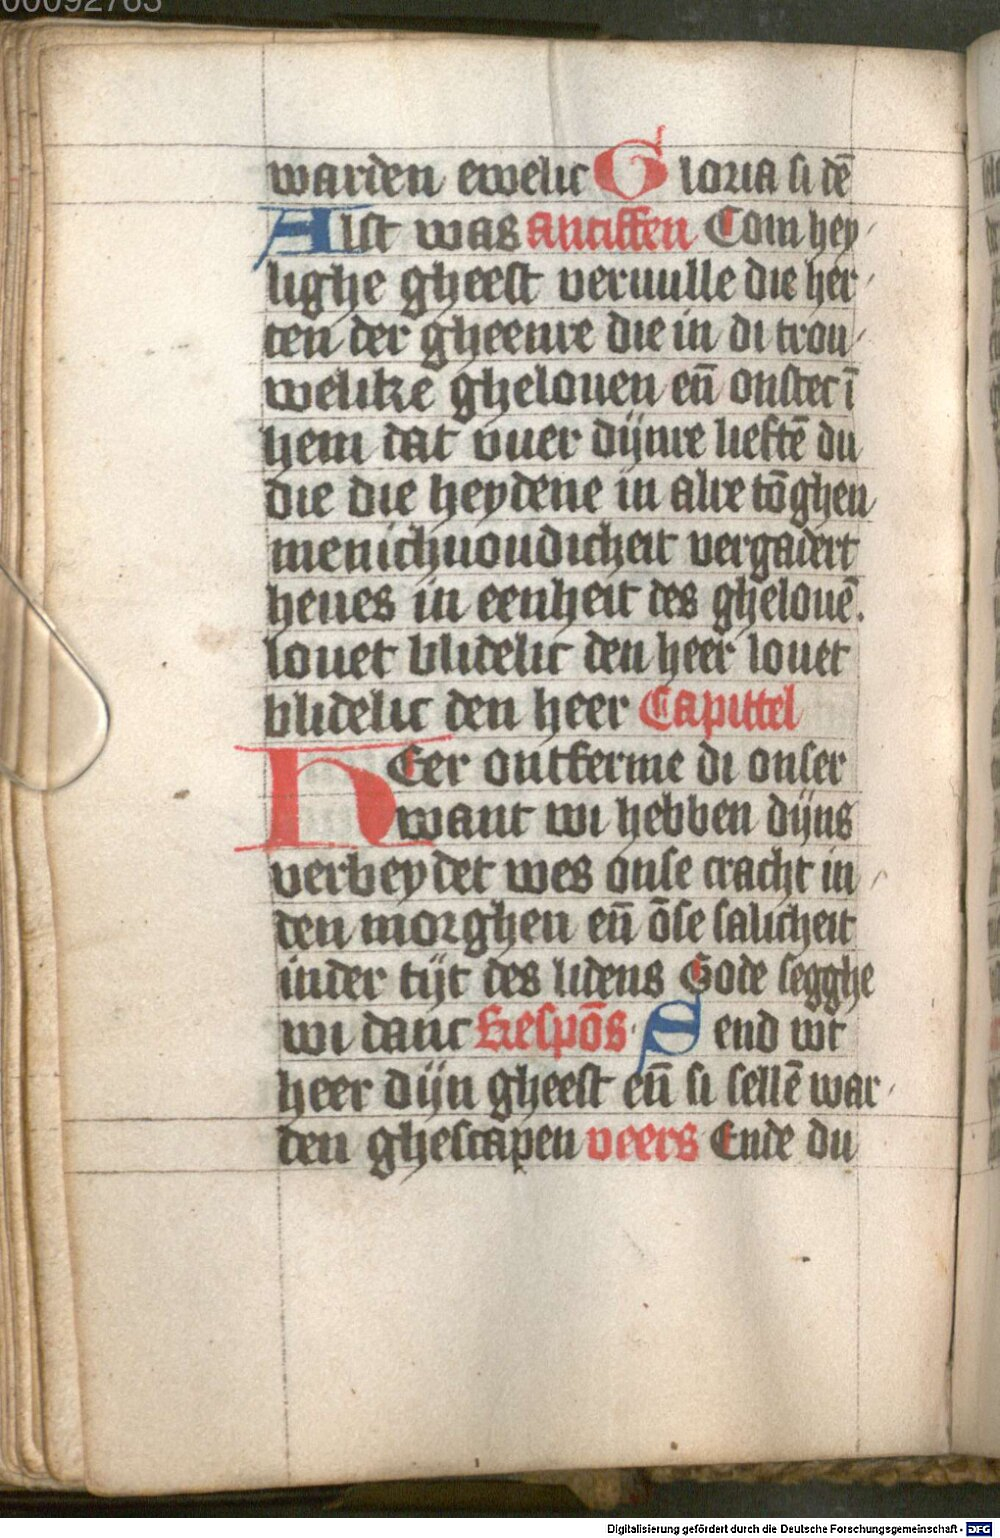 00092763
warden ewelic Gloria si dē
Alst was antiffen Com hey
lighe gheest veruulle die her
ten der gheenre die in di trou
welike ghelouen eñ onstec ī
hem dat vuer dijnre lieftē du
die die heydene in alre tōghen
menichuoudicheit vergadert
heues in eenheit des ghelouē.
louet blidelic den heer louet
blidelic den heer Capittel
HEer ontferme di onser
want wi hebben dijns
verbeydet wes onse cracht in
den morghen eñ ōse salicheit
inder tijt des lidens Gode segghe
wi danc Respōs. Send wt
heer dijn gheest eñ si sellē war
den ghescapen veers Ende du
Digitalisierung gefördert durch die Deutsche Forschungsgemeinschaft - DFG